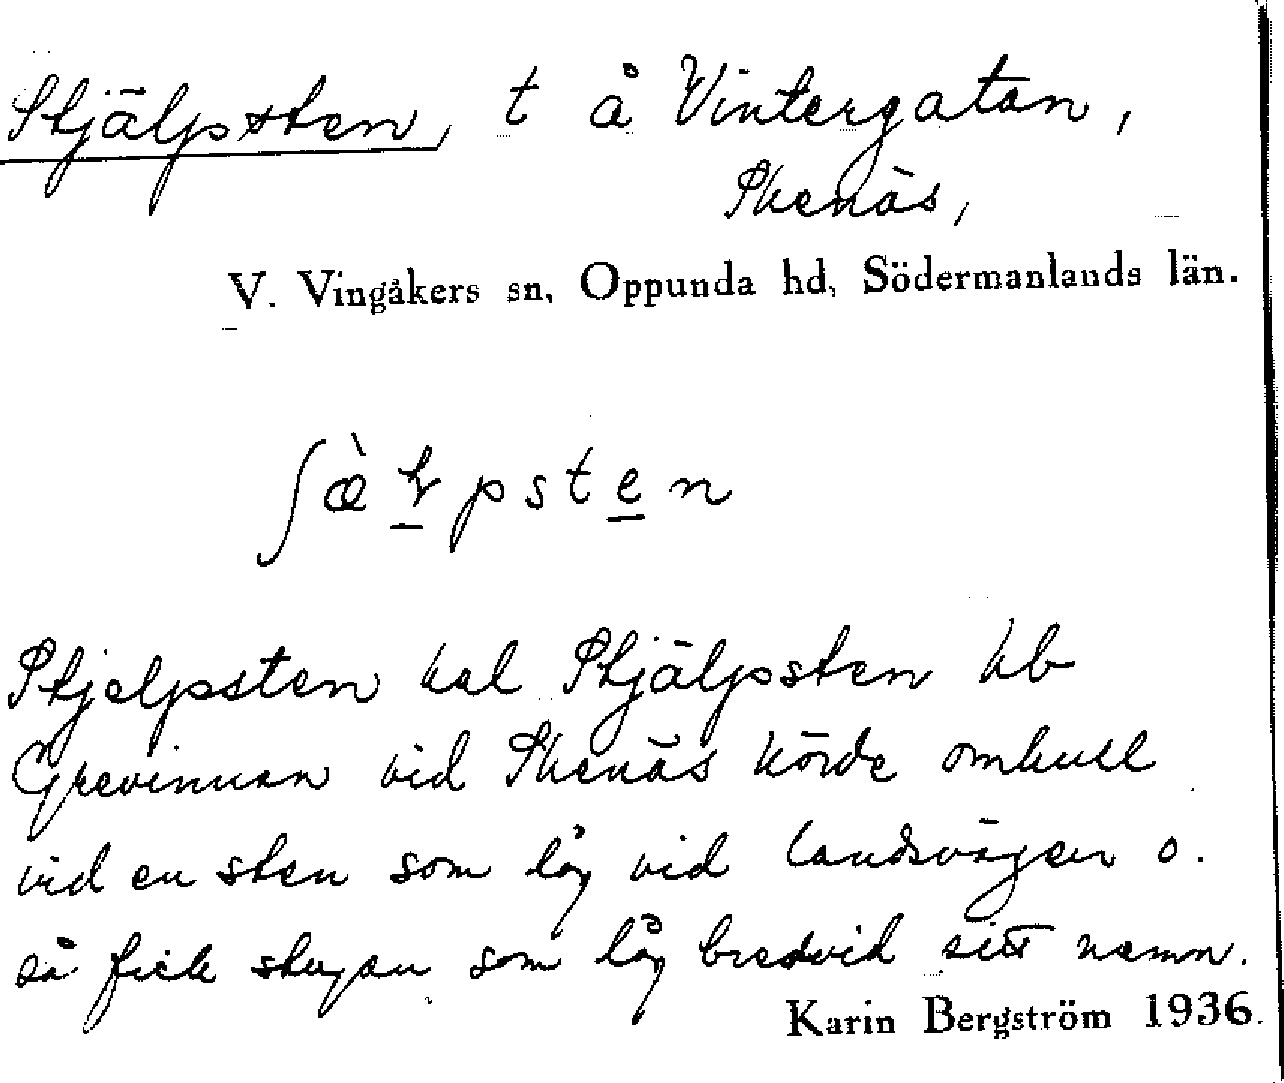 Stjälpsten, t å Vintergatan,
Skenäs,
V. Vingåkers sn, Oppunda hd, Södermanlands län.
ʃæ̀ɽpsten
Stjelpsten kal Stjälpsten hb
Grevinnan vid Skenäs körde omkull
vid en sten som låg vid landsvägen o.
så fick stugan som låg bredvid sitt namn.
Karin Bergström 1936.